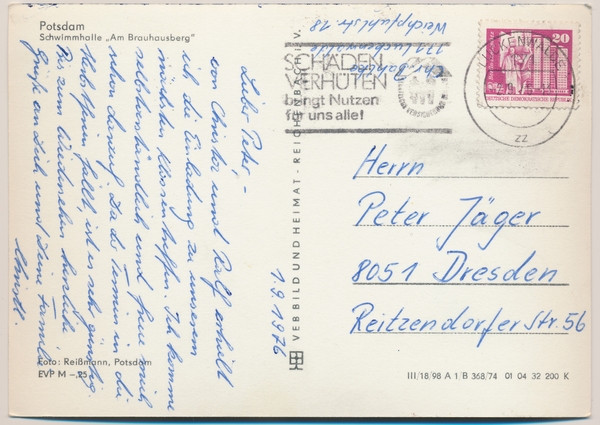 Potsdam
Schwimmhalle „Am Brauhausberg"
Lieber Peter, -
von Christa und Ralf erhielt
ich die Einladung zu unserem
nächsten Klassentreffen. Ich komme
selbstverständlich und freue mich
schon darauf. Da der Termin in die
Herbstferien fällt, ist es sehr günstig.
Bis zum Wiedersehen herzliche
Grüße an Dich und Deine Famil.
1.9.1976
Foto: Reißmann, Potsdam
EVP M –,25
VEB BILD UND HEIMAT · REICHENBACH i. V.
111 Luckenwalde
Weichpfuhlstr. 18
SCHÄDEN
VERHÜTEN
bringt Nutzen
für uns alle!
LUCKENWALDE
zz
20
DEUTSCHE DEMOKRATISCHE REPUBLIK
Herrn
Peter Jäger
8051 Dresden
Reitzendorfer Str. 56
III/18/98 A 1 B 368/74 01 04 32 200 K